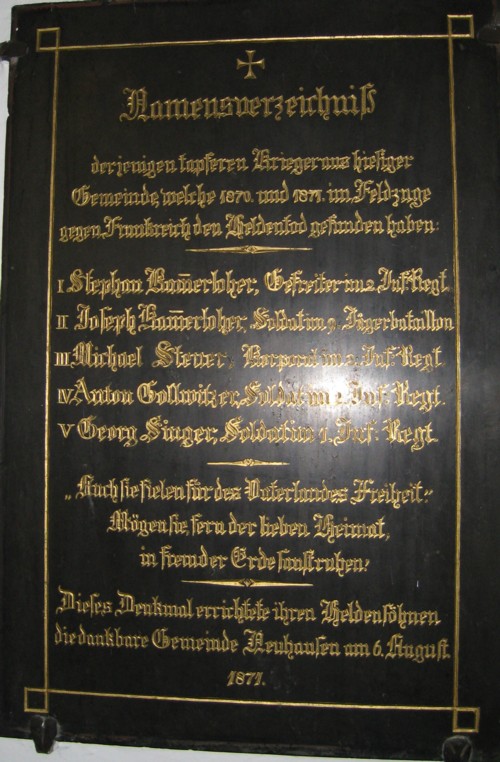 Namensverzeichniß
derjenigen tapferen Krieger aus hiesiger
Gemeinde, welche 1870. und 1871. im Feldzuge
gegen Frankreich den Heldentod gefunden haben:
I Stephan Ham̅erloher, Gefreiter im 2. Inf. Regt.
II Joseph Ham̅erloher, Soldat im 9. Jägerbataillon
III Michael Steuer, Korporal im 2. Inf. Regt.
IV Anton Gollwitzer, Soldat im 2. Inf. Regt.
V Georg Singer, Soldat im 1. Inf. Regt.
„Auch sie fielen für des Vaterlandes Freiheit.“
Mögen sie, fern der lieben Heimat,
in fremder Erde sanft ruhen!
Dieses Denkmal errichtete ihren Heldensöhnen
die dankbare Gemeinde Neuhausen am 6. August
1871.